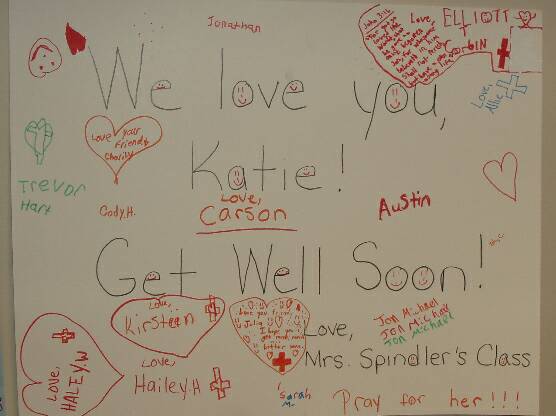 Jonathan
John 3:16
Love, ELLIOTT
Corbin
We love you,
Love,
Allie
Love your
friend
Charity
Katie!
Trevor
Hart
Cody.H.
Love,
Carson
Austin
Get Well Soon!
Love,
Kirsteen
Love,
HALEY.W
Love,
Hailey.H
Julia
I hope you
Jon Michael
Jon Michael
Jon Michael
Love,
Mrs. Spindler's Class
Sarah
M.
Pray for her!!!